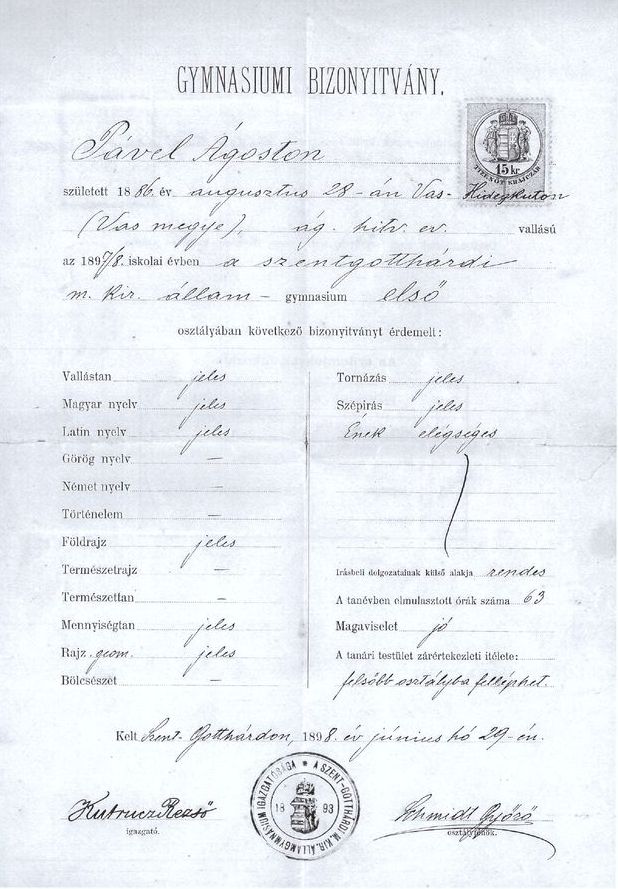 GYMNASIUMI BIZONYITVÁNY.
15 kr
TIZENÖT KRAJCZÁR
Pável Ágoston
született 1886. év augusztus 28-án Vas-Hidegkuton
(Vas megye), ág. hitv. ev. vallású
az 1897/8. iskolai évben a szentgotthárdi
m. kir. állam- gymnasium első
osztályában következő bizonyitványt érdemelt:
Vallástan jeles
Magyar nyelv jeles
Latin nyelv jeles
Görög nyelv —
Német nyelv —
Történelem —
Földrajz jeles
Természetrajz —
Természettan —
Mennyiségtan jeles
Rajz. geom. jeles
Bölcsészet —
Tornázás jeles
Szépirás jeles
Ének elégséges
Irásbeli dolgozatainak külső alakja rendes
A tanévben elmulasztott órák száma 63
Magaviselet jó
A tanári testület zárértekezleti itélete:
felsőbb osztályba felléphet.
Kelt Szent-Gotthárdon, 1898. év június hó 29-én.
A SZENT-GOTTHÁRDI M. KIR. ÁLLAMGYMNASIUM IGAZGATÓSÁGA *
18 93
Kutrucz Rezső
igazgató.
Schmidt Győző
osztályfőnök.